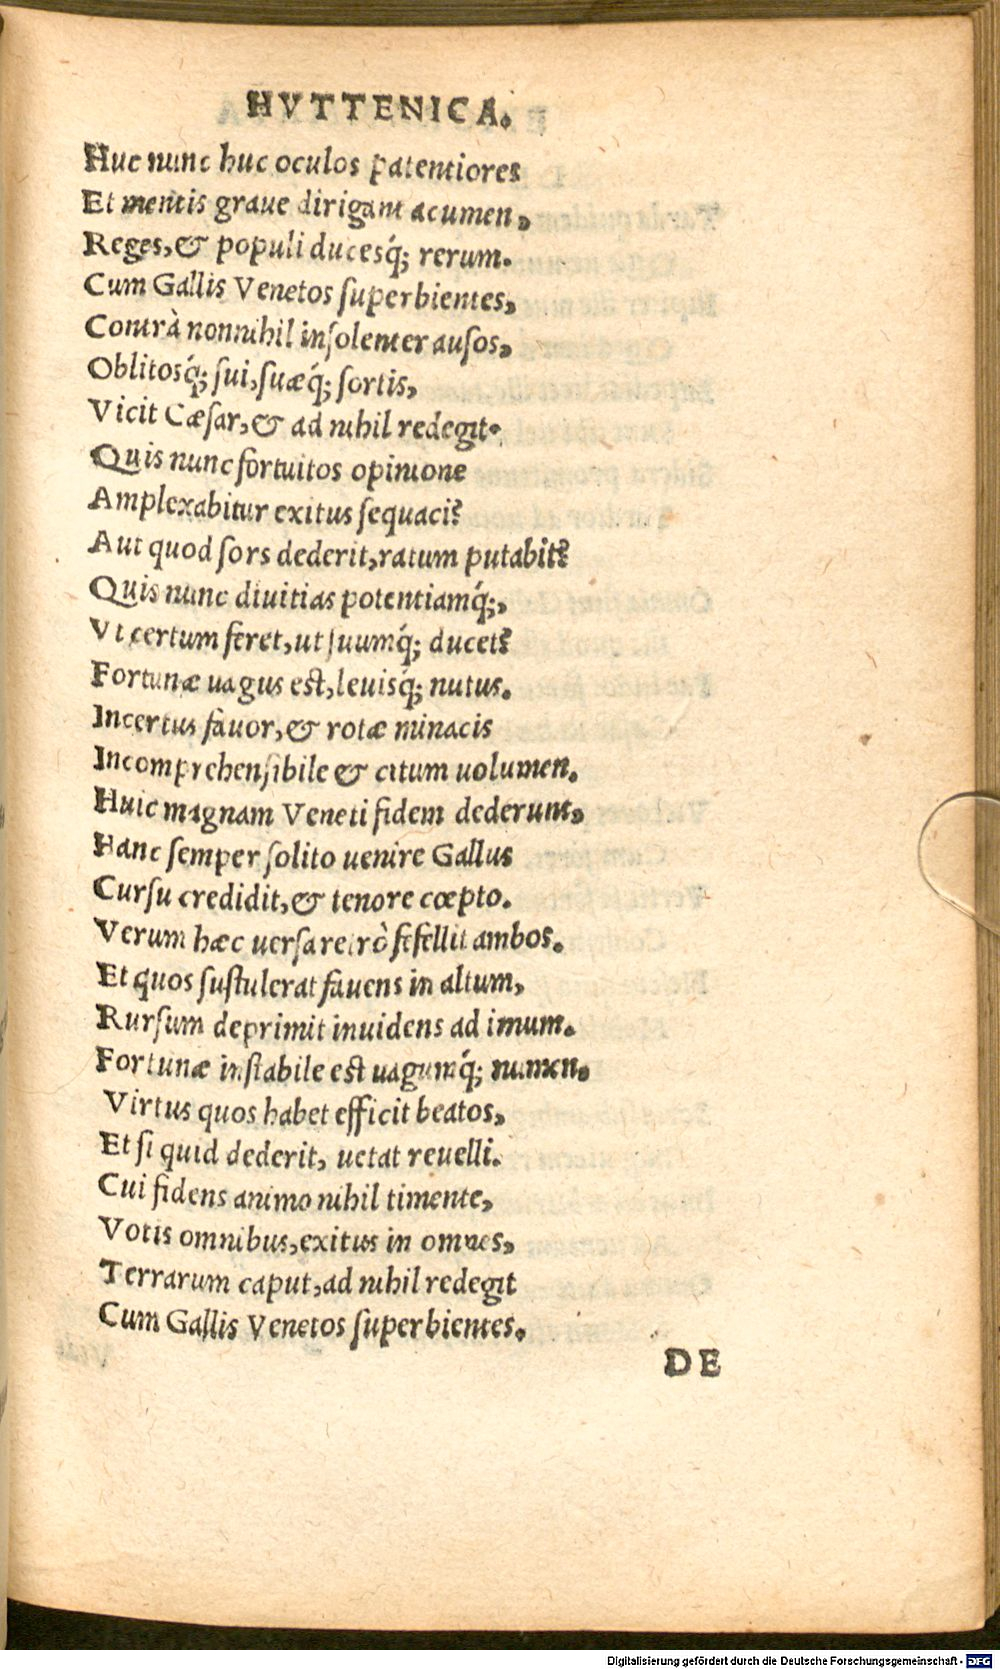 HVTTENICA.
Huc nunc huc oculos patentiores
Et mentis graue dirigant acumen,
Reges, & populi ducesq́; rerum.
Cum Gallis Venetos superbientes,
Contrà nonnihil insolenter ausos,
Oblitosq́; sui, suæq́; sortis,
Vicit Cæsar, & ad nihil redegit.
Quis nunc fortuitos opinione
Amplexabitur exitus sequaci?
Aut quod sors dederit, ratum putabit?
Quis nunc diuitias potentiamq́;,
Vt certum feret, ut suumq́; ducet?
Fortunæ uagus est, leuisq́; nutus.
Incertus fauor, & rotæ minacis
Incomprehensibile & citum uolumen.
Huic magnam Veneti fidem dederunt,
Hanc semper solito uenire Gallus
Cursu credidit, & tenore cœpto.
Verum hæc uersa retrò fefellit ambos.
Et quos sustulerat fauens in altum,
Rursum deprimit inuidens ad imum.
Fortunæ instabile est uagumq́; numen.
Virtus quos habet efficit beatos,
Et si quid dederit, uetat reuelli.
Cui fidens animo nihil timente,
Votis omnibus, exitus in omnes,
Terrarum caput, ad nihil redegit
Cum Gallis Venetos superbientes.
DE
Digitalisierung gefördert durch die Deutsche Forschungsgemeinschaft - DFG